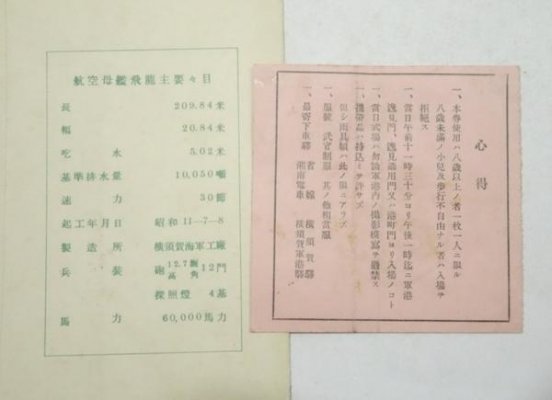 航空母艦飛龍主要々目
長 209.84米
幅 20.84米
吃水 5.02米
基準排水量 10,050噸
速力 30節
起工年月日 昭和11-7-8
製造所 横須賀海軍工廠
兵装 砲12.7糎高角12門
探照燈 4基
馬力 60,000馬力
心得
一、本券使用ハ八歳以上ノ者一枚一人ニ限ル
八歳未満ノ小児及歩行不自由ナル者ハ入場ヲ
拒絶ス
一、當日午前十一時三十分ヨリ午後一時迄ニ軍港
逸見門、逸見通用門又ハ港町門ヨリ入場ノコト
一、當日式場ハ勿論軍港内ノ撮影模寫ヲ厳禁ス
一、携帯品ハ持込ミヲ許サズ
但シ雨具類ハ此ノ限ニアラズ
一、服装 武官制服 其ノ他相當服
一、最寄下車驛 省線 横須賀驛
湘南電車 横須賀軍港驛